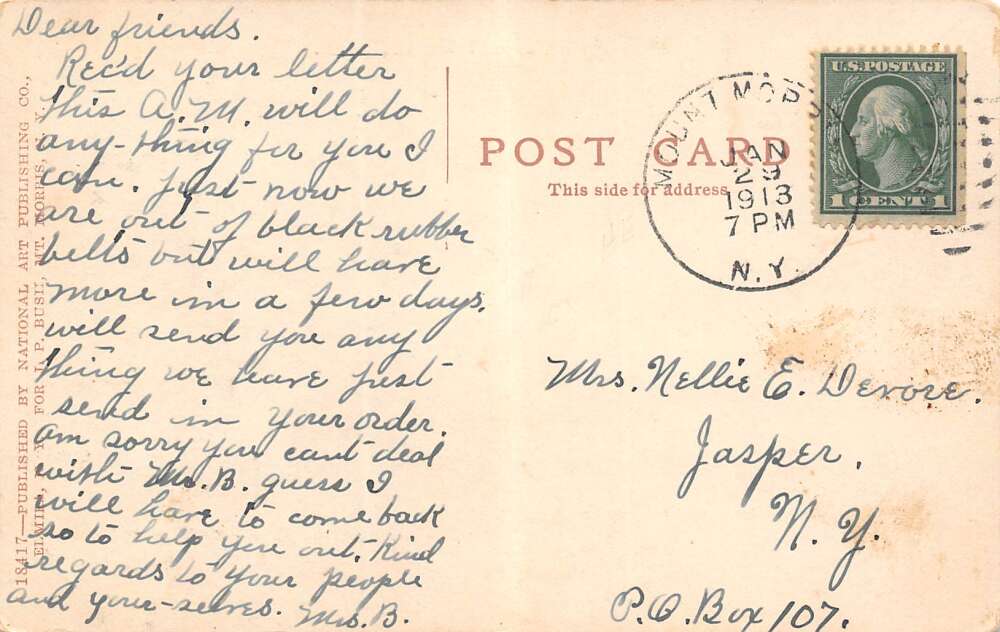 Dear friends.
Rec'd your letter
this A.M. will do
any-thing for you I
can. Just now we
are out of black rubber
belts but will have
more in a few days.
will send you any
thing we have just
send in your order.
am sorry you cant deal
with Mr. B. guess I
will have to come back
so to help you out. Kind
regards to your people
and your-selves. Mrs. B.
18417—PUBLISHED BY NATIONAL ART PUBLISHING CO.,
ELMIRA, N. Y., FOR J. P. BUSH, MT. MORRIS, N. Y.
POST CARD
This side for address.
MOUNT MORRIS
JAN
29
1913
7 PM
N.Y.
U.S. POSTAGE
1 CENT 1
Mrs. Nellie E. Devore.
Jasper.
N. Y.
P.O. Box 107.